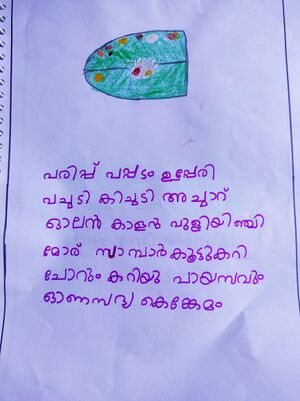 പരിപ്പ് പപ്പടം ഉപ്പേരി
പച്ചടി കിച്ചടി അച്ചാറ്
ഓലൻ കാളൻ പുളിയിഞ്ചി
മോര് സാമ്പാർ കൂട്ടുകറി
ചോറും കറിയു പായസവും
ഓണസദ്യ കെങ്കേമം